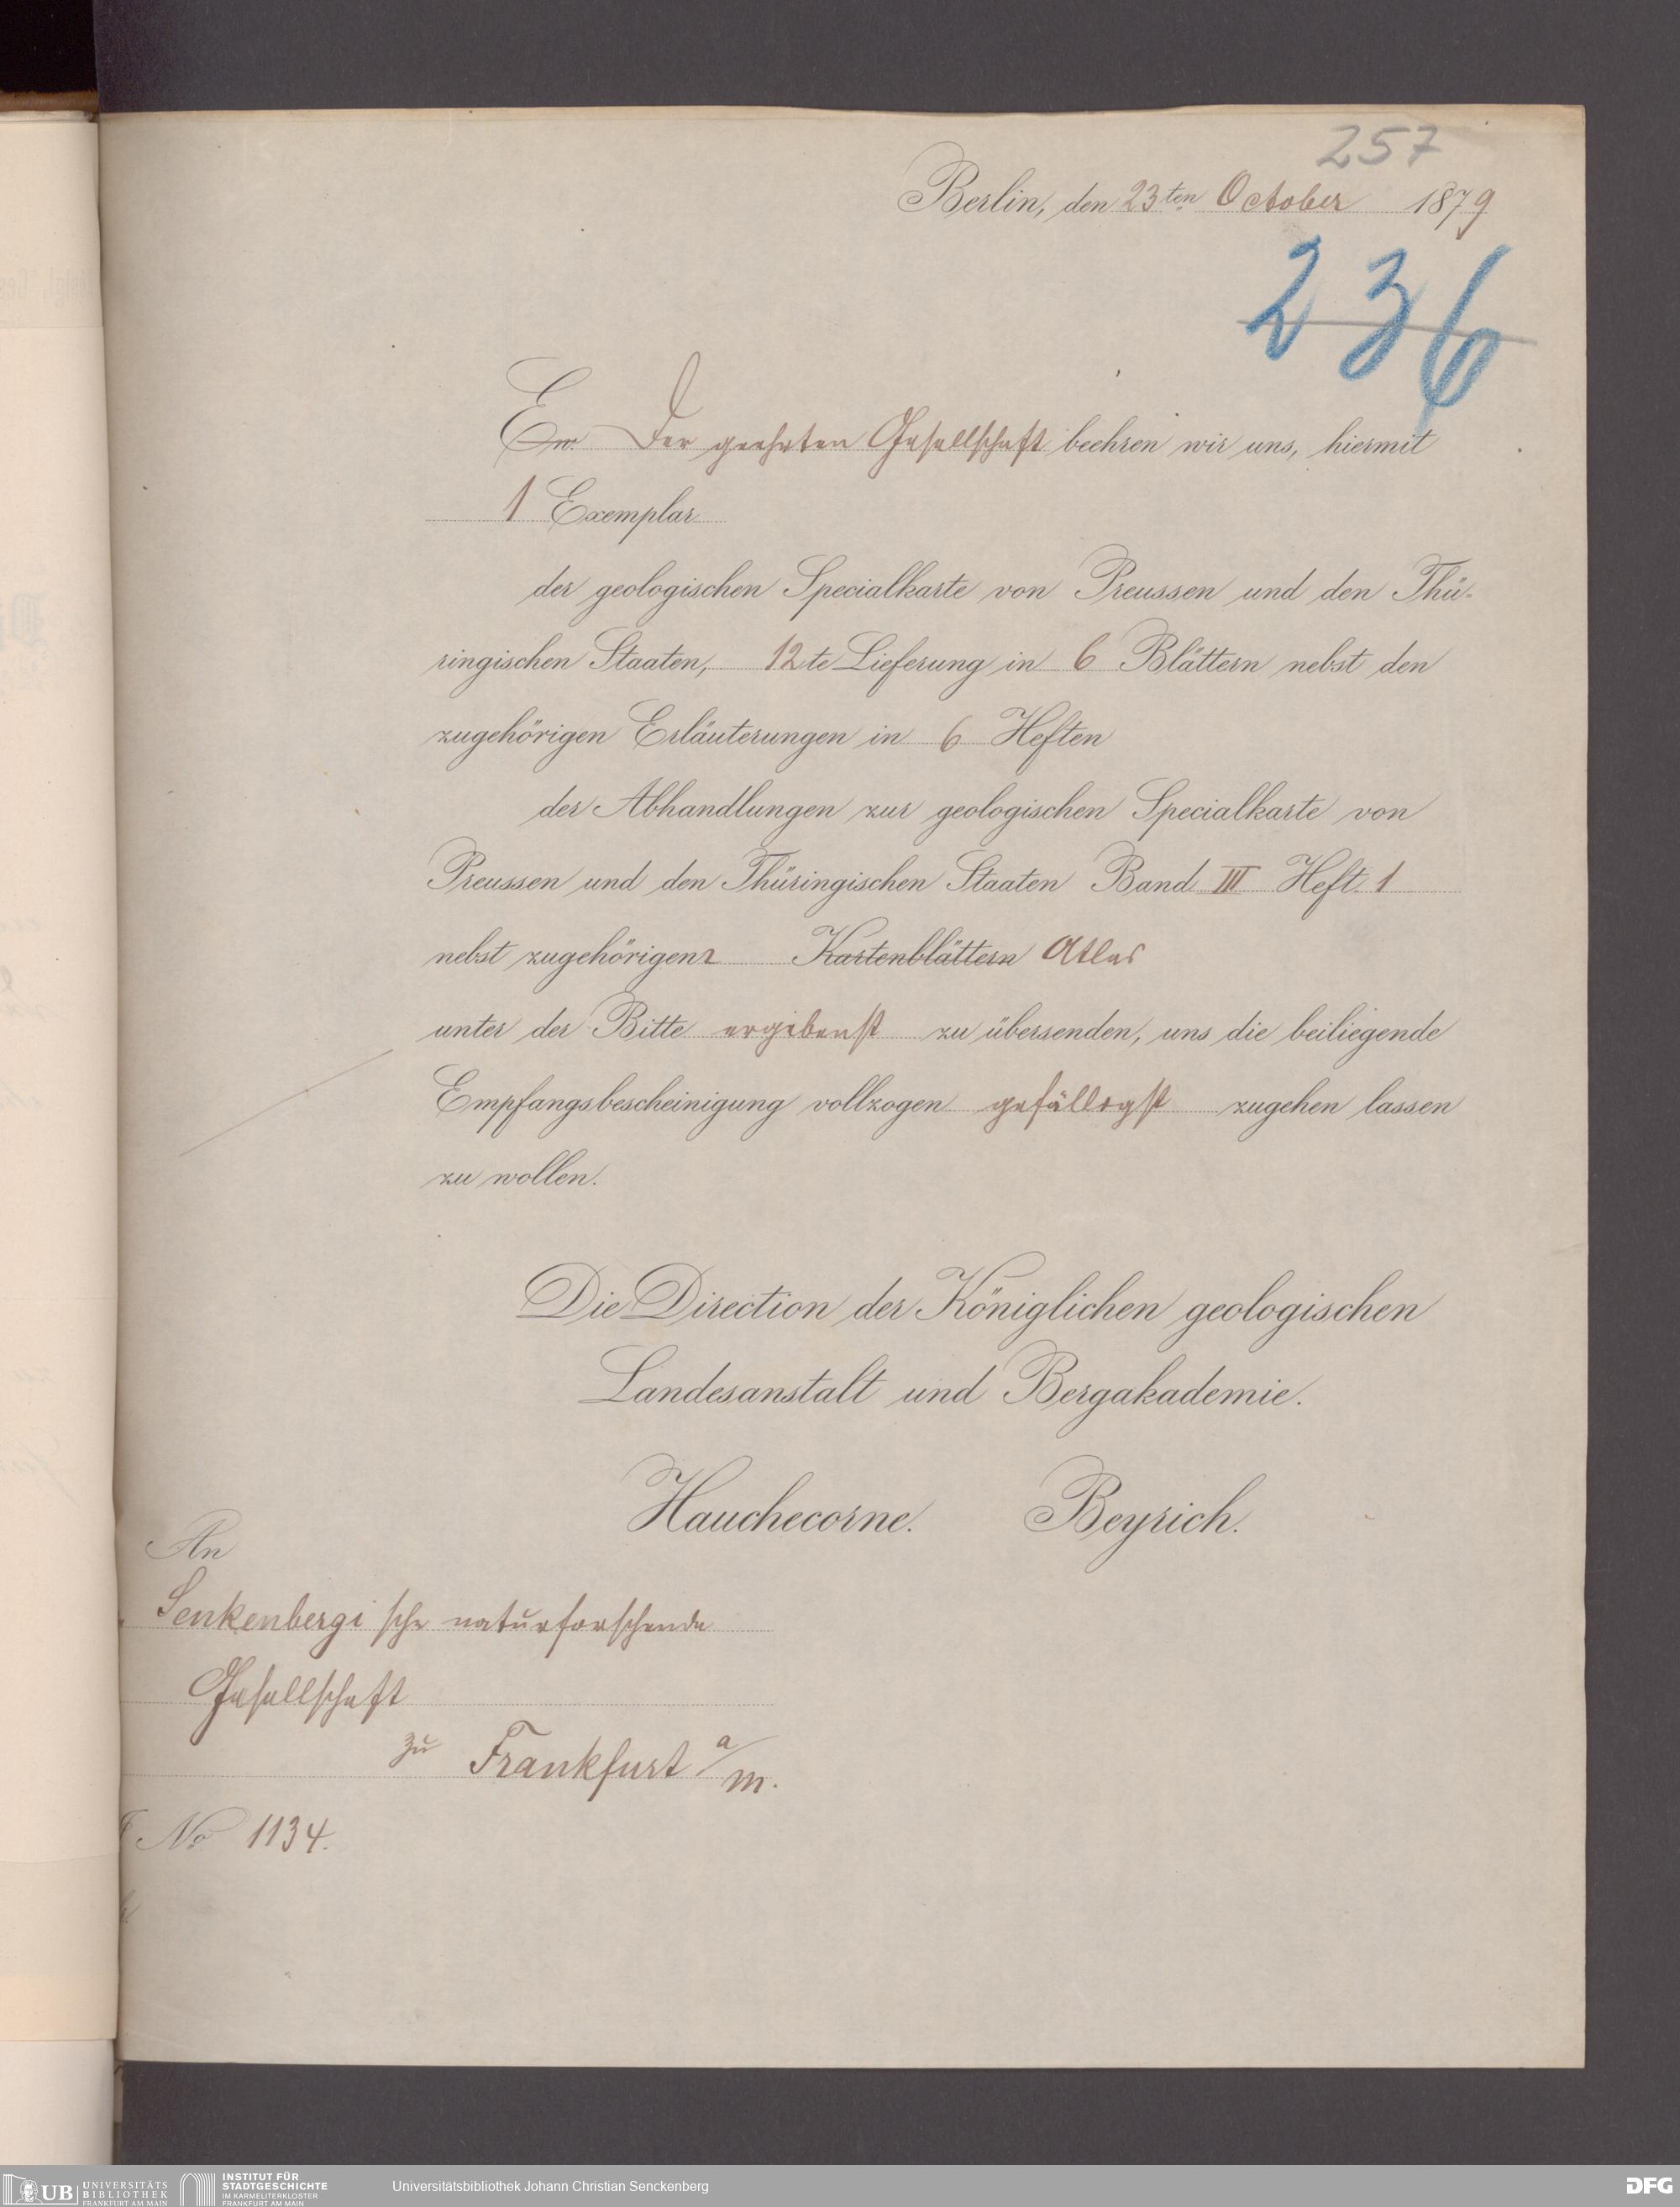 257
Berlin, den 23ten October 1879
236
Ew. Der geehrten Gesellschaft beehren wir uns, hiermit
1 Exemplar
der geologischen Specialkarte von Preussen und den Thü-
ringischen Staaten, 12te Lieferung in 6 Blättern nebst den
zugehörigen Erläuterungen in 6 Heften
der Abhandlungen zur geologischen Specialkarte von
Preussen und den Thüringischen Staaten Band III Heft 1
nebst zugehörigen Kartenblättern Atlas
unter der Bitte ergebenst zu übersenden, uns die beiliegende
Empfangsbescheinigung vollzogen gefälligst zugehen lassen
zu wollen.
Die Direction der Königlichen geologischen
Landesanstalt und Bergakademie.
Hauchecorne. Beyrich.
An
Senkenbergische naturforschende
Gesellschaft
zu Frankfurt a/m.
No 1134.
UB UNIVERSITÄTS
BIBLIOTHEK
FRANKFURT AM MAIN
INSTITUT FÜR
STADTGESCHICHTE
IM KARMELITERKLOSTER
FRANKFURT AM MAIN
Universitätsbibliothek Johann Christian Senckenberg
DFG